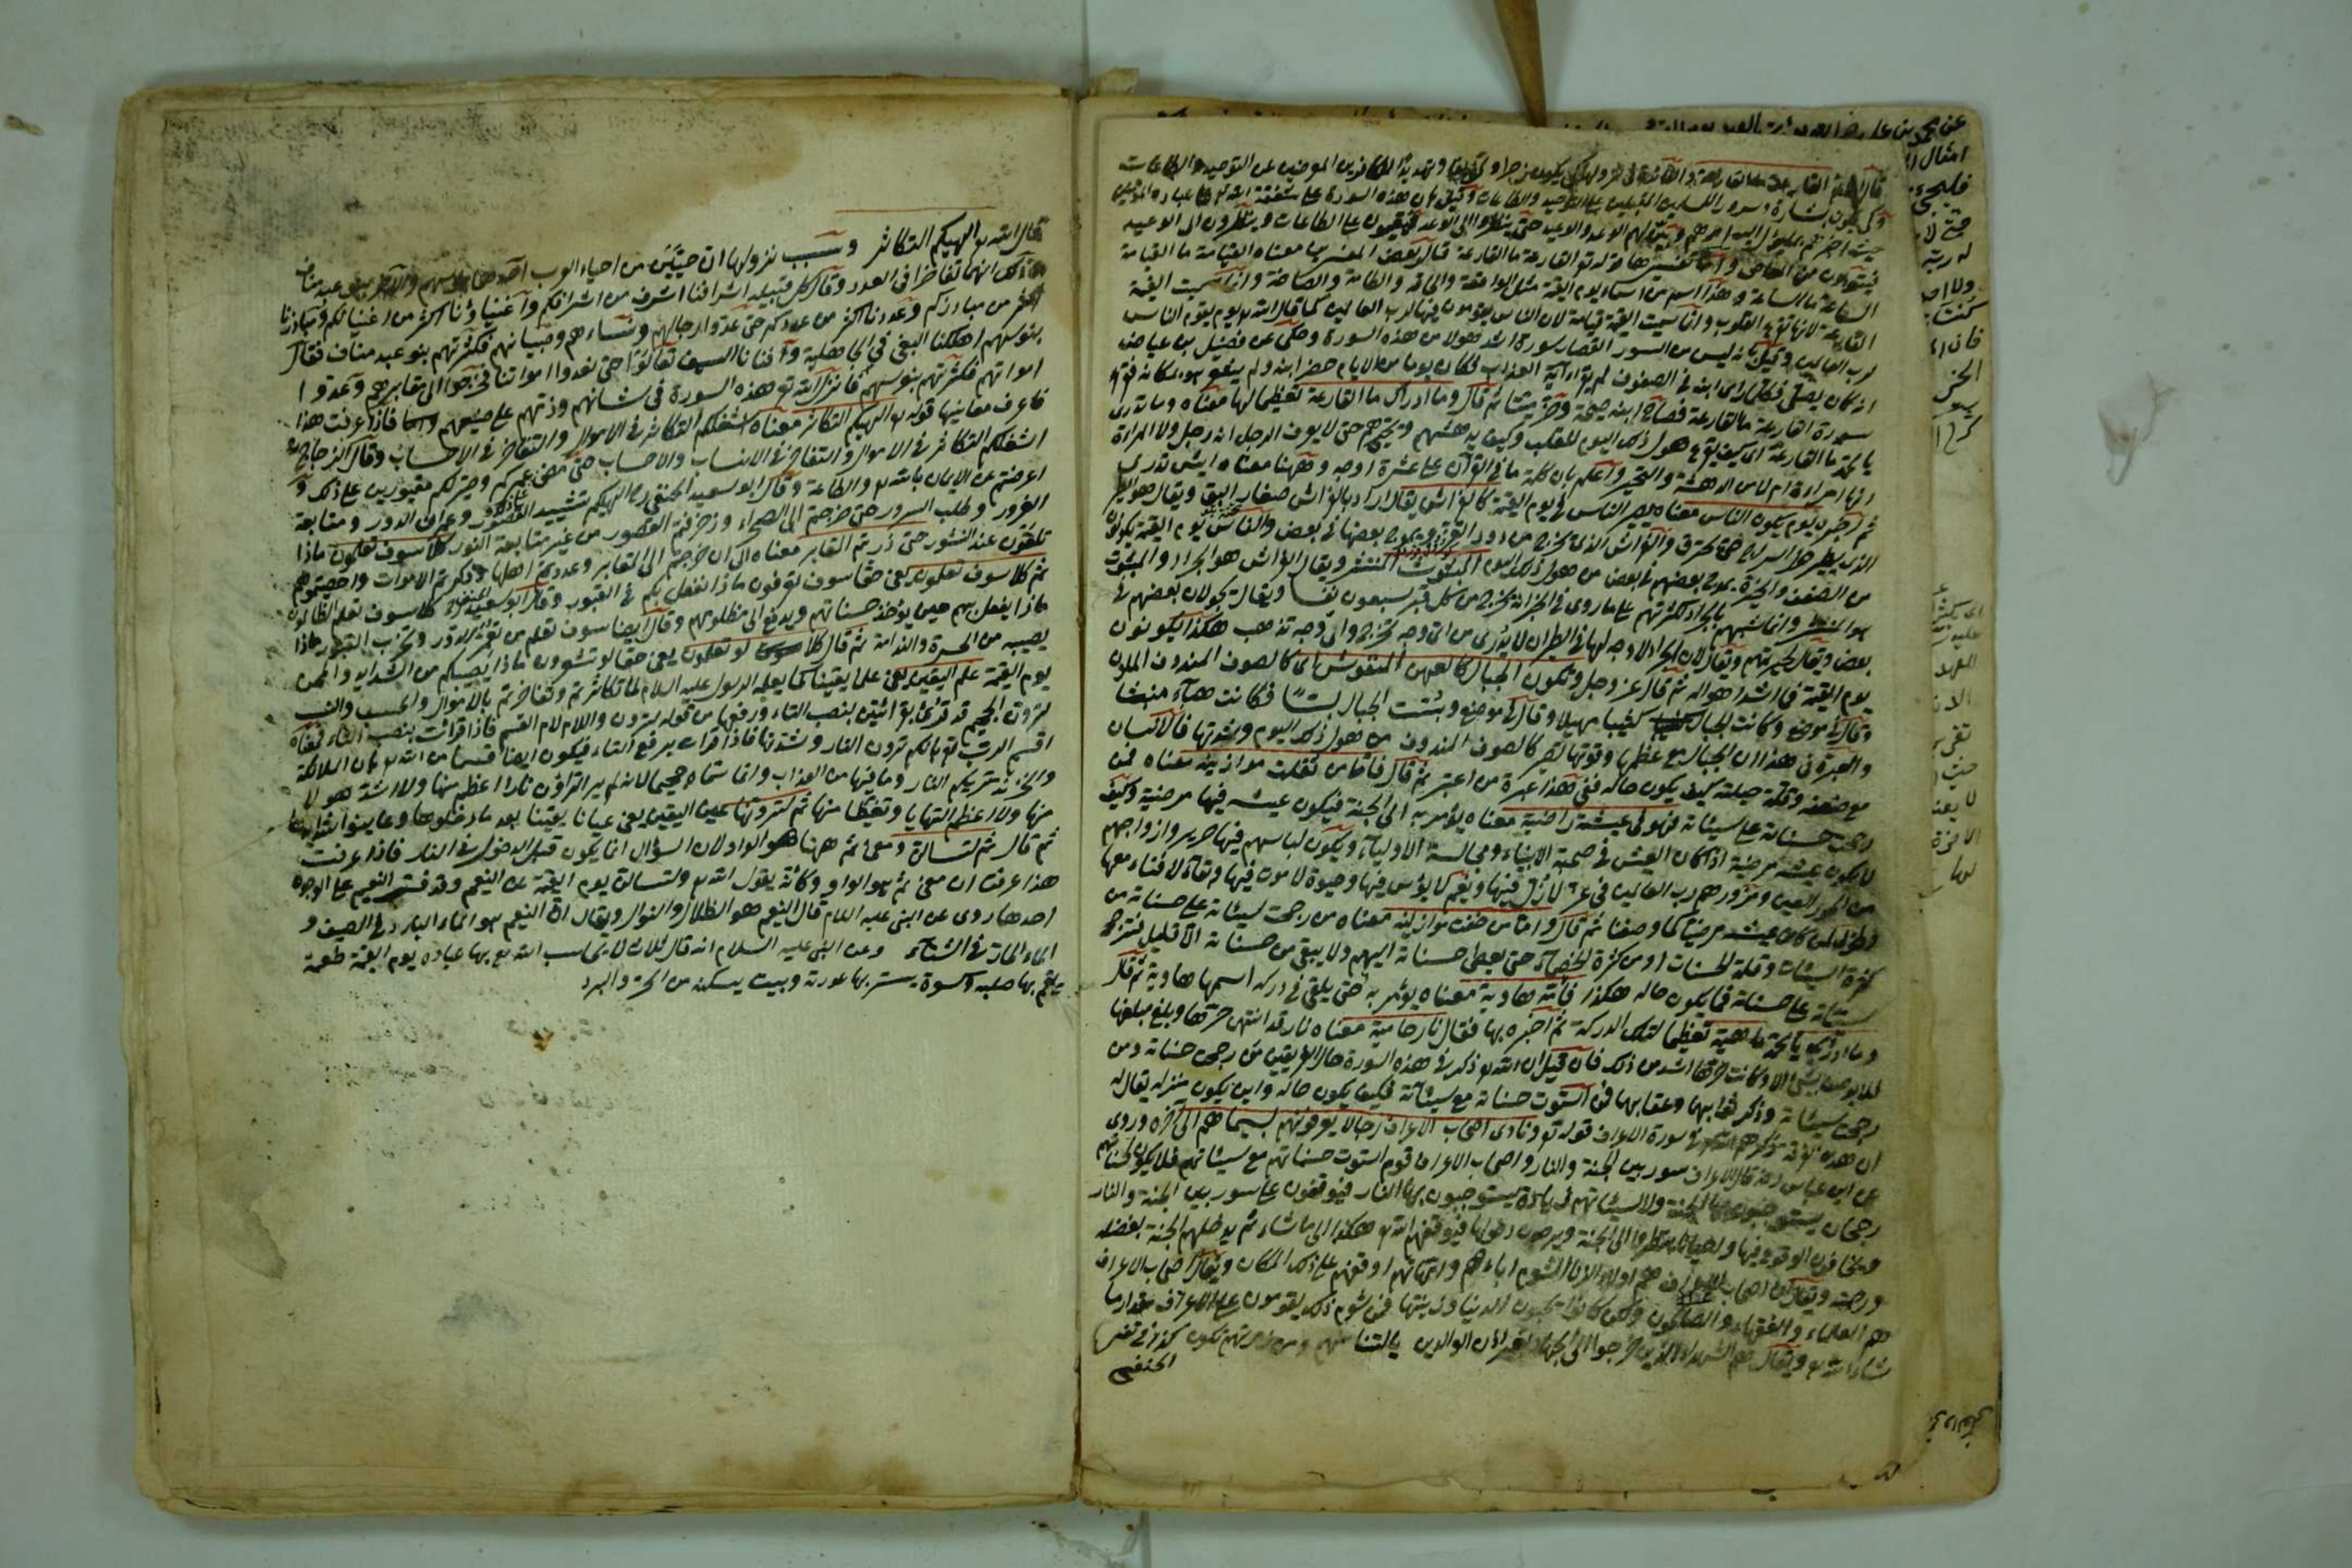 قال الله القارعة ما القارعة والفائدة في نزولها لكي يكون زجرا وتخويفا وتهديدا للكافرين المعرضين عن التوحيد والطاعات
ولكي يكون بشارة وسرور للمسلمين المقبلين على التوحيد والطاعات وقيل ان هذه السورة على شفقة الله تع على عباده المؤمنين
حيث اخبرهم الوعد والوعيد حتى ينظروا الى الوعد فيقيمون على الطاعات وينظرون الى الوعيد
فيتحولون من المعاصي واما تفسيرها قوله تع القارعة ما القارعة قال بعض المفسرين معناه القيامة ما القيامة
الساعة ما الساعة وهذا اسم من اسماء يوم القيمة مثل الواقعة والحاقة والطامة والصاخة وانما سميت القيمة
القارعة لانها تقرع القلوب وانما سميت القيمة قيامة لان الناس يقومون فيها لرب العالمين كما قال الله تع يوم يقوم الناس
لرب العالمين وقيل بانه ليس من السور القصار سورة اشد هولا من هذه السورة وحكى عن فضيل بن عياض
انه كان يصلي فكلما راى ابنه في الصفوف لم يقراء آية العذاب فكان يوما من الايام حضر ابنه ولم يعلم بمكانه فقراء
سورة القارعة ما القارعة فصاح ابنه صيحة وخر ميتا ثم قال وما ادراك ما القارعة تعظيما لها معناه وما تدري
يا محمد ما القارعة اى كيف يقع هول ذلك اليوم للقلب وكيف يدهشهم ويحيرهم حتى لا يعرف الرجل انه رجل ولا المراءة
انها امراءة ام لا من الدهشة والتحير واعلم بان كلمة ما في القرآن على عشرة اوجه وههنا معناه ايش تدري
ثم اخبر يوم يكون الناس معناه يصير الناس في يوم القيمة كالفراش يقال اراد بالفراش صغار البق ويقال هو الطير
الذي يطير حول السراج حتى يحترق والفراش الذي يخرج من دود القز ويموج بعضها في بعض والناس يوم القيمة يكون
من الضعف والحيرة يموج بعضهم في بعض من هول ذلك اليوم المبثوث المنتشر ويقال الفراش هو الجراد والمبثوث
هو المنتشر وانما شبههم بالجراد لكثرتهم على ما روى في الخبر انه يخرج من كل قبر سبعون نفسا ويقال يجولان بعضهم في
بعض ويقال لحيرتهم ويقال لان الجراد لا وجه لها في الطيران لا يدري من اى وجه تخرج والى وجه تذهب هكذا يكونون
يوم القيمة في اشد اهواله ثم قال عز وجل وتكون الجبال كالعهن المنفوش اى كالصوف المندوف الملون
وقال في موضع وكانت الجبال كثيبا مهيلا وقال في موضع وبست الجبال بسا فكانت هباء منبثا
والعبرة في هذا ان الجبال مع عظمها وقوتها تصير كالصوف المندوف من هول ذلك اليوم وشدتها فالانسان
مع ضعفه وقلة حيلته كيف يكون حاله ففي هذا عبرة من اعتبر ثم قال فاما من ثقلت موازينه معناه فمن
رجحت حسناته على سيئاته فهو في عيشة راضية معناه يؤمر به الى الجنة فيكون عيشه فيها مرضية وكيف
لا يكون عيشه مرضية اذا كان العيش في صحبة الانبياء ومجالسة الاولياء ويكون لباسهم فيها حرير وازواجهم
من الحور العين ومزورهم رب العالمين في عز لا ذل فيها ونعيم لا بؤس فيها وحيوة لا موت فيها وبقاء لا فناء معها
وطوبى لمن كان عيشه مرضيا كما وصفنا ثم قال واما من خفت موازينه معناه من رجحت سيئاته على حسناته من
كثرة السيئات وقلة الحسنات او من كثرة الخصماء حتى يعطى حسناته اليهم ولا يبقى من حسناته الا قليل فترجح
سيئاته على حسناته فما يكون حاله هكذا فامه هاوية معناه يؤمر به حتى يلقى في دركة اسمها هاوية ثم قال
وما ادريك يا محمد ما هيه تعظيما لتلك الدركة ثم اخبره بها فقال نار حامية معناه نار قد انتهى حرقها وبلغ مبلغها
فلا يوصف بشئ الا وكانت حرقها اشد من ذلك فان قيل ان الله تع ذكر في هذه السورة حال الفريقين من رجحت حسناته ومن
رجحت سيئاته وذكر ثوابهما وعقابهما فمن استوت حسناته مع سيئاته فكيف يكون حاله واين يكون منزله يقال له
ان هذه الفرقة ذكرهم الله تع في سورة الاعراف قوله تع ونادى اصحاب الاعراف رجالا يعرفونهم بسيماهم الى آخره وروى
عن ابن عباس رضه قال الاعراف سور بين الجنة والنار واصحاب الاعراف قوم استوت حسناتهم مع سيئاتهم فلا يكون لحسناتهم
رجحان يستوجبون بها الجنة ولا لسيئاتهم زيادة يستوجبون بها النار فيوقفون على سور بين الجنة والنار
ويخافون الوقوع فيها واحيانا ينظروا الى الجنة ويرجون دخولها فيوقفهم الله تع هكذا الى ما شاء ثم يدخلهم الجنة بفضله
ورحمته ويقال ان اصحاب الاعراف هم اولاد الزنا لشوم اباءهم وامهاتهم اوقفهم على ذلك المكان ويقال اصحاب الاعراف
هم العلماء والفقهاء والصالحون ولكن كانوا يحبون الدنيا وزينتها فمن شوم ذلك يقومون على الاعراف مقدار ما
شاء الله تع ويقال هم الشهداء الذين خرجوا الى الجهاد بغير اذن الوالدين
الحنفي
قال الله تع الهيكم التكاثر وسبب نزولها ان حيين من احياء العرب احدهما بنو سهم والآخر بنو عبد مناف
وذلك انهما تفاخرا في العدد وقال كل قبيلة اشرافنا اشرف من اشرافكم واغنياؤنا اكثر من اغنيائكم ومبارزنا
اكثر من مبارزكم وعددنا اكثر من عددكم حتى عدوا رجالهم ونساءهم وصبيانهم فكثرتهم بنو عبد مناف فقال
بنو سهم اهلكنا البغي في الجاهلية وافنانا السيف تعالوا حتى نعدوا امواتنا فخرجوا الى مقابرهم وعدوا
امواتهم فكثرتهم بنو سهم فانزل الله تع هذه السورة في شانهم وذمهم على صنيعهم فاذا عرفت هذا
فاعرف معانيها قوله تع الهيكم التكاثر معناه اشغلكم التكاثر في الاموال والتفاخر في الاحساب وقال الزجاج
اشغلكم التكاثر في الاموال والتفاخر في الانساب والاحساب حتى مضى عمركم وصرتكم مقبورين على ذلك و
اعرضتم عن الايمان بالله تع والطاعة وقال ابو سعيد الحنفي رح الهيكم تشييد القصور وعمران الدور ومتابعة
الغرور وطلب السرور حتى خرجتم الى الصحراء وزخرفة القصور من غير متابعة النور كلا سوف تعلمون ماذا
تلقون عند النشور حتى زرتم المقابر معناه الى ان خرجتم الى المقابر وعددتم اهلها وذكرتم الاموات واحصيتموهم
ثم كلا سوف تعلمون يعني حقا سوف تعرفون ماذا نفعل بكم في القبور وقال ابو سعيد الحنفي كلا سوف تعلم الظالمون
ماذا يفعل بهم حين يؤخذ حسناتهم ويدفع الى مظلومهم وقال ايضا سوف تعلم من تعمير الدور وتخرب القبور ماذا
يصيبه من الحسرة والندامة ثم قال كلا لو تعلمون يعني حقا لو تشعرون ماذا يصيبكم من الشدايد والمحن
يوم القيمة علم اليقين يعني علما يقينا كما يعلمه الرسول عليه السلام لما تكاثرتم وتفاخرتم بالاموال والحسب والنسب
لترون الجحيم قد قرئ بقرائتين بنصب التاء ورفعها من قوله لترون واللام لام القسم فاذا قرأت بنصب التاء فمعناه
اقسم الرب تع بانكم ترون النار وشدتها فاذا قرات برفع التاء فيكون ايضا قسما من الله تع بان الملائكة
والخزنة تريكم النار وما فيها من العذاب وانما سماه جحيما لانه لم ير الراؤن نارا اعظم منها ولا اشد هولا
منها ولا اعظم التهابا وتغيظا منها ثم لترونها عين اليقين يعني عيانا يقينا بعد ما دخلوها وعاينوا شدايدها
ثم قال ثم لتسالن ومعنى ثم ههنا هو الواو لان السؤال انما يكون قبل الدخول في النار فاذا عرفت
هذا عرفت ان معنى ثم هو الواو وكانه يقول الله تع ولتسالن يوم القيمة عن النعيم وقد فسر النعيم على الوجوه
احدها روى عن النبي عليه السلام قال النعيم هو الظلال والنوال ويقال ان النعيم هو الماء البارد في الصيف و
الماء الحار في الشتاء وعن النبي عليه السلام انه قال ثلاث لا يحاسب الله تع بها عباده يوم القيمة طعمة
يقيم بها صلبه وكسوة يستر بها عورته وبيت يسكنه من الحر والبرد